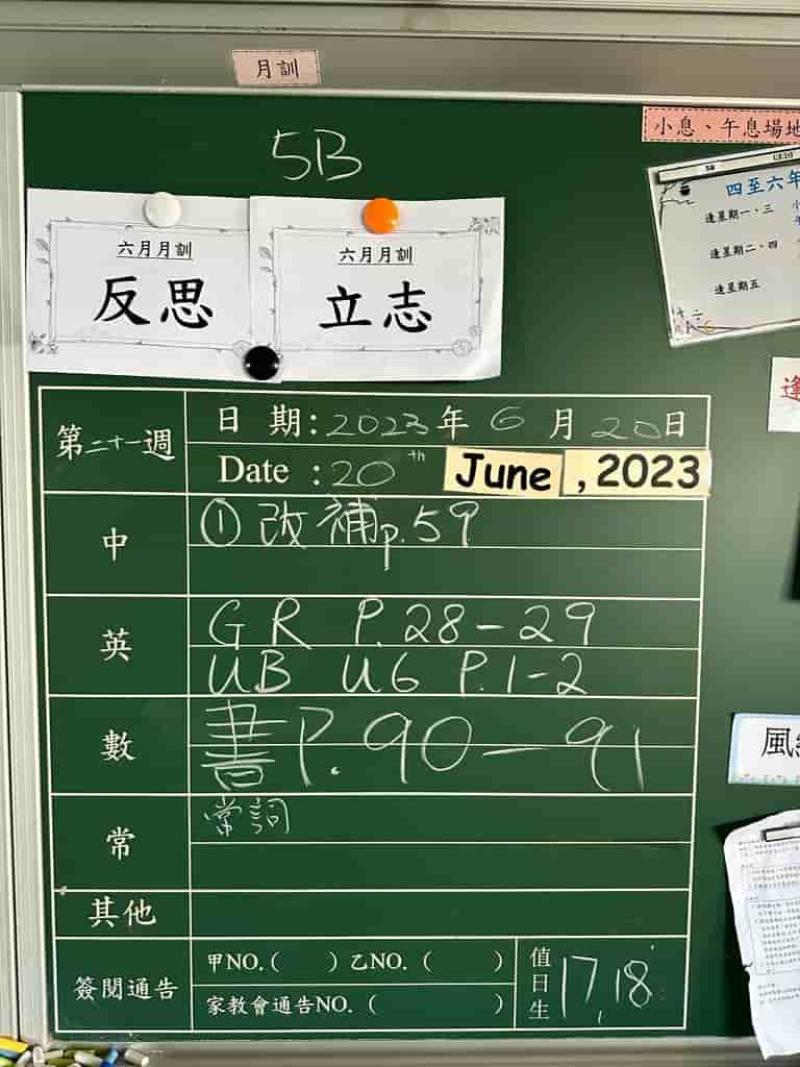 月訓
小息、午息場地
5B
六月月訓
反思
六月月訓
立志
四至六年
逢星期一、三
逢星期二、四
逢星期五
第二十一週
日 期：2023年 6 月 20日
Date : 20th June , 2023
中
① 改補p.59
英
GR P.28-29
UB U6 P.1-2
數
書P.90-91
常
常詞
其他
簽閱通告
甲NO.( ) 乙NO. ( )
家教會通告NO. ( )
值日生
17,18
逢
風